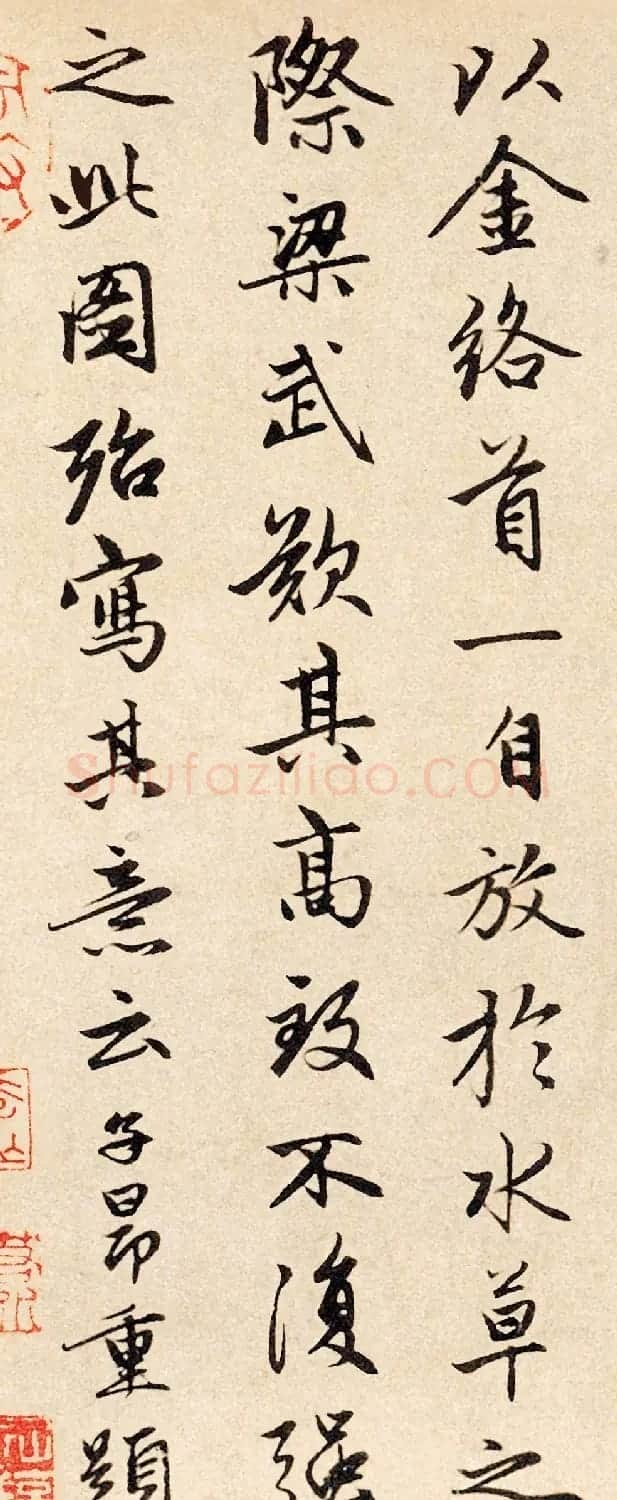 以金络首一自放於水草之
際梁武歎其高致不復强
之此圖殆寫其意云子昂重題
shufaziliao.com